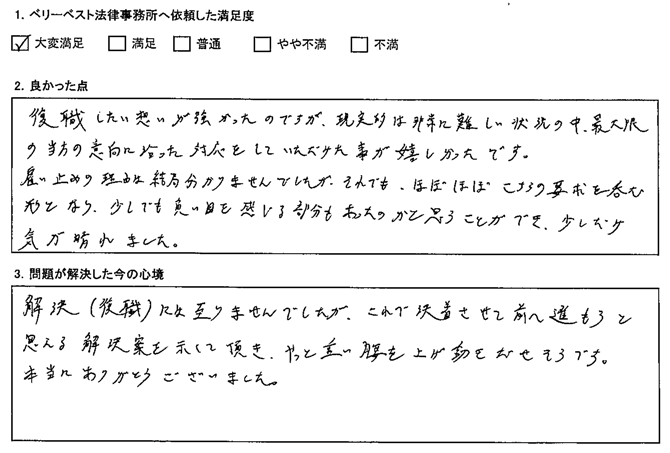 1. ベリーベスト法律事務所へ依頼した満足度
大変満足 満足 普通 やや不満 不満
2. 良かった点
復職したい想いが強かったのですが、現実的は非常に難しい状況の中、最大限
の当方の意向に沿った対応をしていただけた事が嬉しかったです。
雇い止めの理由は結局分かりませんでしたが、それでも、ほぼほぼこちらの要求を呑む
形となり、少しでも負い目を感じる部分もあったのかと思うことができ、少しだけ
気が晴れました。
3. 問題が解決した今の心境
解決(復職)には至りませんでしたが、これで決着させて前へ進もうと
思える解決案を示して頂き、やっと重い腰を上げ動きだせそうです。
本当にありがとうございました。